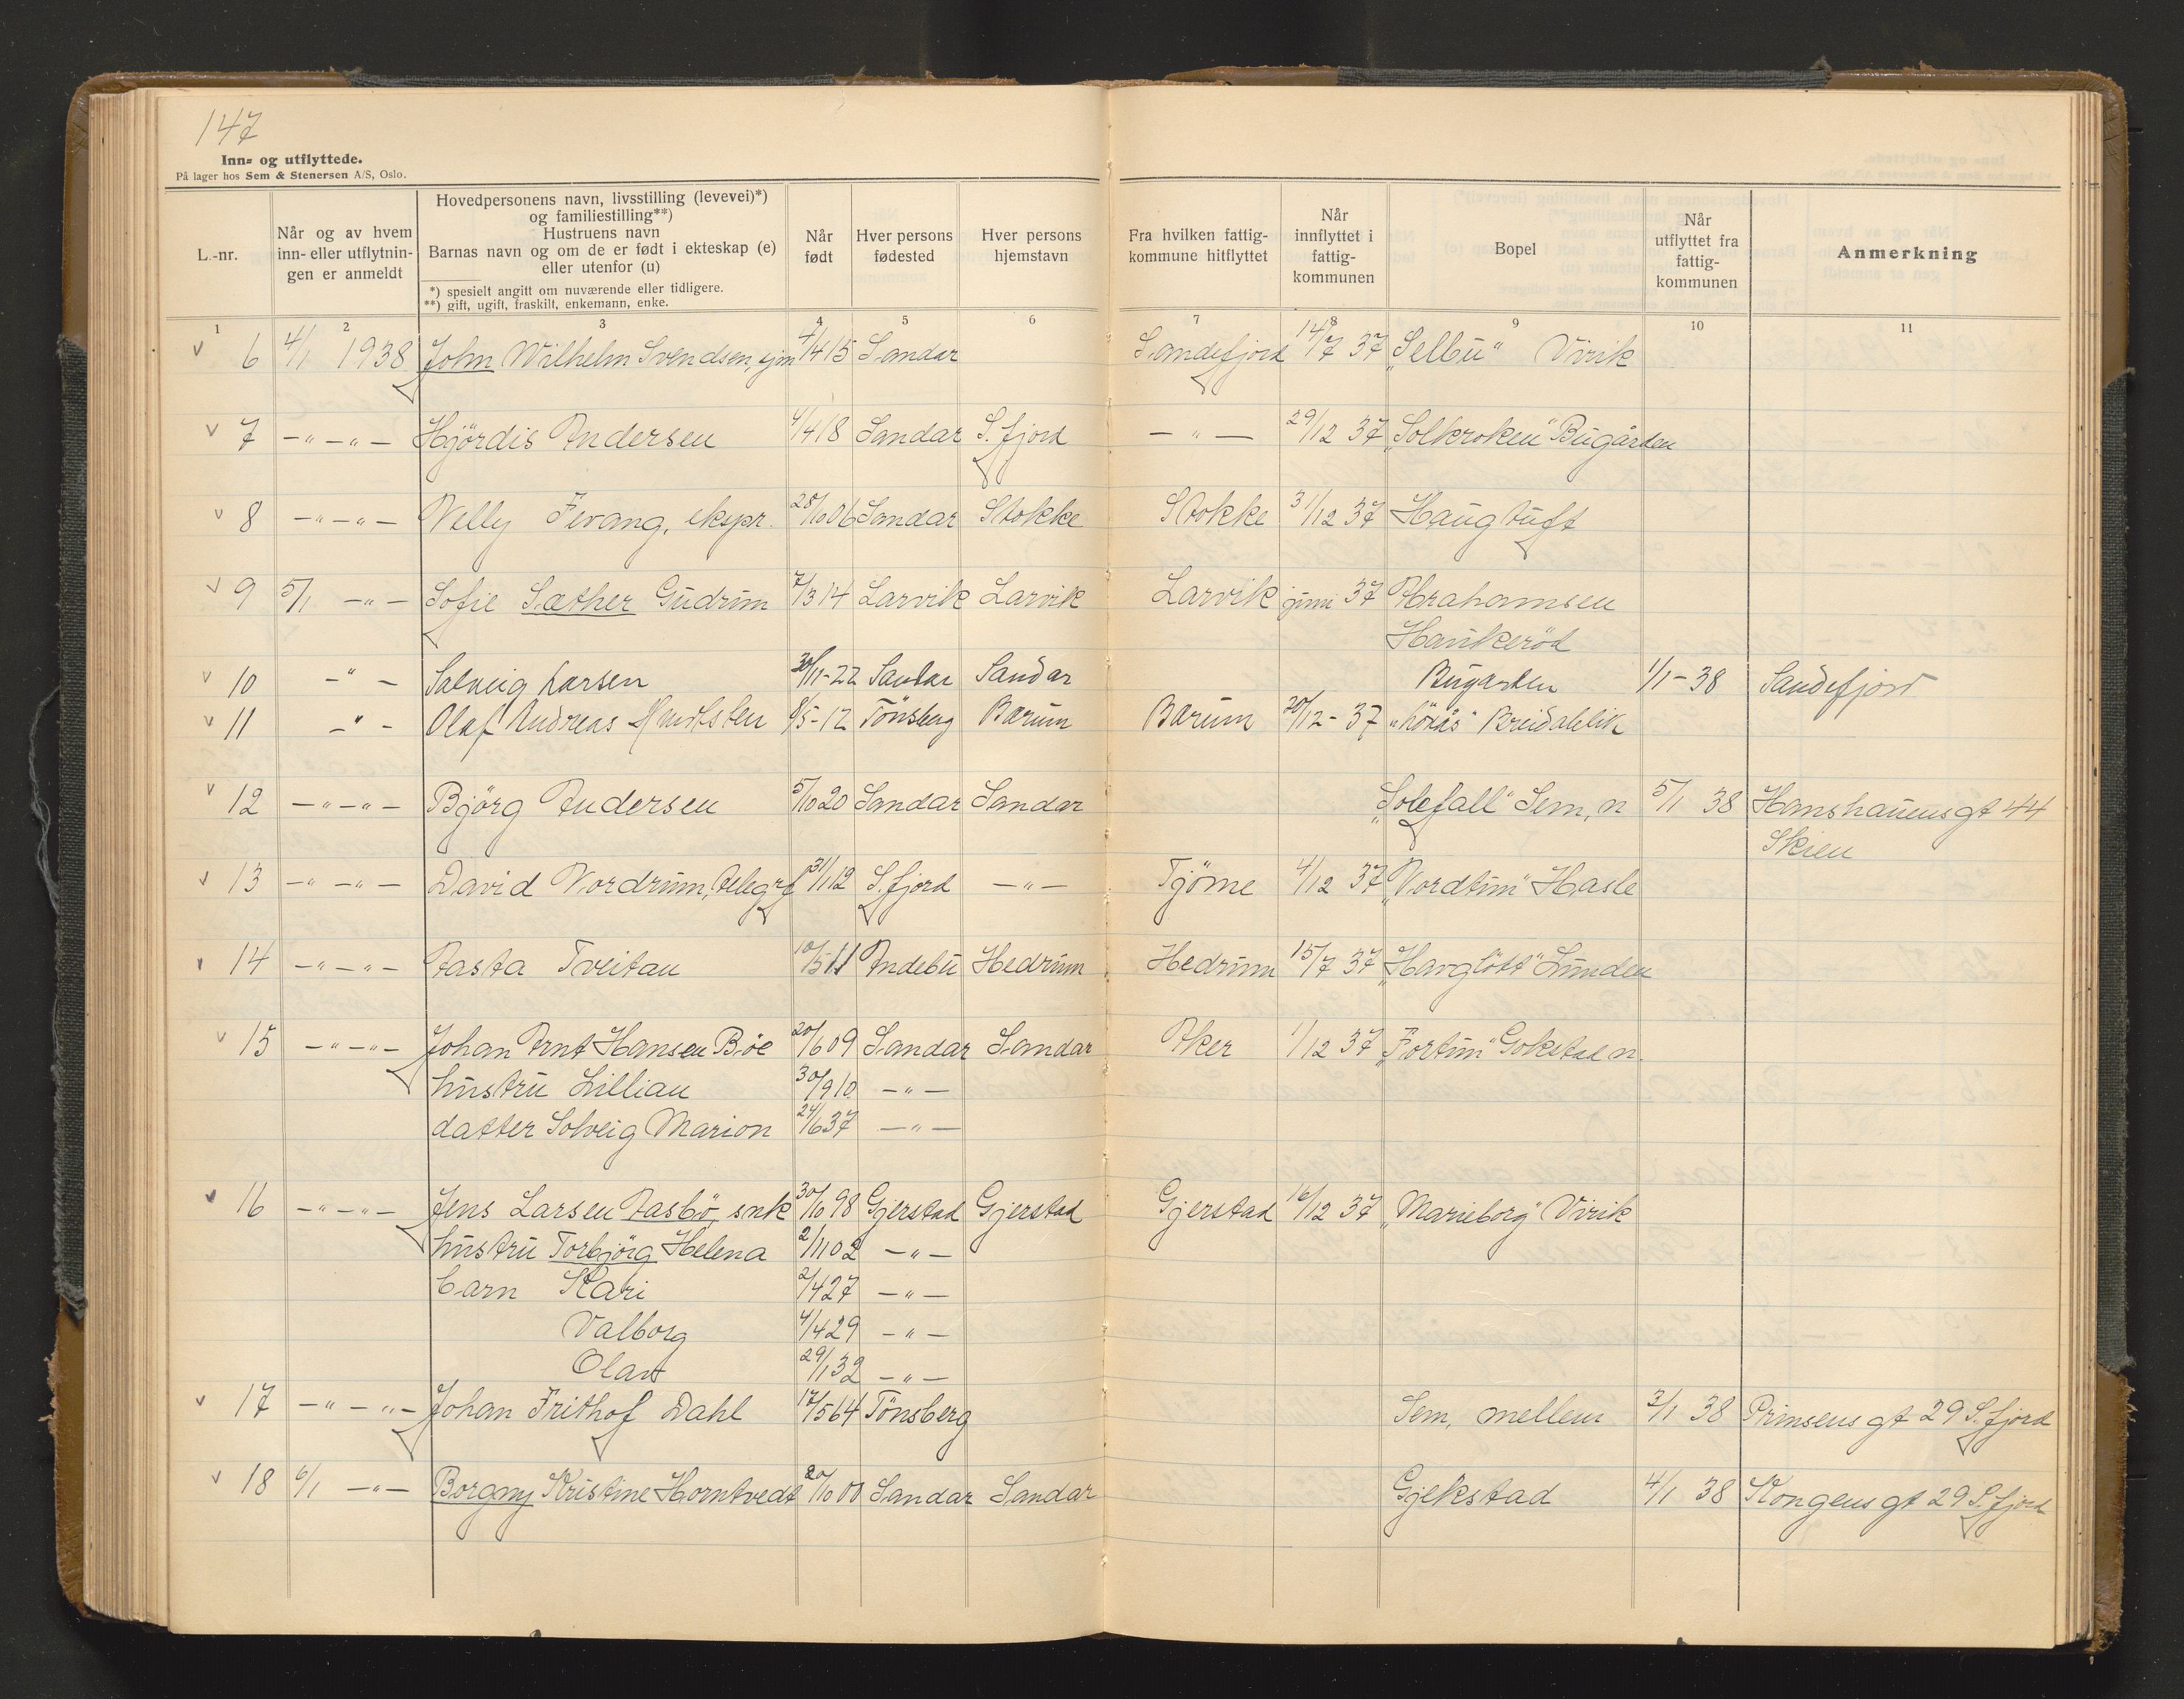 147
Inn- og utflyttede.
På lager hos Sem & Stenersen A/S, Oslo.
L.-nr.
Når og av hvem inn- eller utflytningen er anmeldt
Hovedpersonens navn, livsstilling (levevei)*)
og familiestilling**)
Hustruens navn
Barnas navn og om de er født i ekteskap (e)
eller utenfor (u)
*) spesielt angitt om nuværende eller tidligere.
**) gift, ugift, fraskilt, enkemann, enke.
Når født
Hver persons fødested
Hver persons hjemstavn
Fra hvilken fattigkommune hitflyttet
Når innflyttet i fattigkommunen
Bopel
Når utflyttet fra fattigkommunen
Anmerkning
1 2 3 4 5 6 7 8 9 10 11
6 4/1 1938 John Wilhelm Svendsen, sjm 4/4 15 Sandar Sandefjord 14/7 37 "Selbu" Virik
7 -"-"- Hjördis Andersen 4/4 18 Sandar S.fjord -"- 29/12 37 "Solkroken" Bugården
8 -"-"- Velly Fevang, ekspr. 28/10 06 Sandar Stokke Stokke 31/12 37 Haugtuft
9 5/1 -"- Sofie Sæther Gudrun 7/3 14 Larvik Larvik Larvik juni 37 Abrahamsen
Haukeröd
10 -"- Solveig Larsen 30/11-22 Sandar Sandar Bugården 1/1-38 Sandefjord
11 -"- Olaf Andreas 5-12 Tönsberg Bærum Bærum 20/12-37 Breidablik
12 -"-"- Björg Andersen 5/10 20 Sandar Sandar "Solefall" Sem, n 5/1 38 Hanshauensgt 44
Skien
13 -"-"- David Nordrum, telegrf 31/1 12 S.fjord -"- Tjöme 4/12 37 "Nordtun" Hasle
14 -"-"- Aasta Tveitan 10/5 11 Andebu Hedrum Hedrum 15/7 37 "Hauglött" Lunden
15 -"-"- Johan Arnt Hansen Bøe 20/6 09 Sandar Sandar Aker 1/12 37 "Fortun" Gokstad n.
hustru Lillian 30/9 10 -"-
datter Solveig Marion 24/6 37 -"-
16 -"-"- Jens Larsen Aasbö, snk 30/10 98 Gjerstad Gjerstad Gjerstad 16/12 37 "Marieborg" Virik
hustru Torbjörg Helena 2/11 02 -"-
barn Kari 2/4 27 -"-
Valborg 4/4 29 -"-
Olav 29/1 32 -"-
17 -"-"- Johan Frithof Dahl 17/5 64 Tönsberg Sem, mellem 3/1 38 Prinsensgt 29 S.fjord
18 6/1 -"- Borgny Kristine Horntvedt 20/10 00 Sandar Sandar Gjekstad 4/1 38 Kongensgt 29 S.fjord